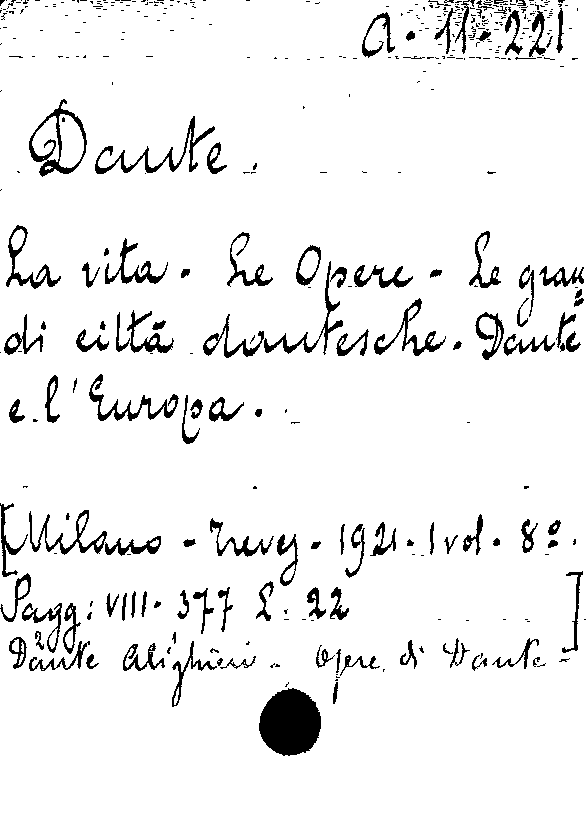 A. 11. 221
Dante.
La vita - Le Opere - Le gran=
di città dantesche. Dante
e l'Europa.
[Milano - Treves - 1921. 1 vol. 8º.
Pagg: VIII. 377 L. 22]
Dante Alighieri - Opere di Dante -